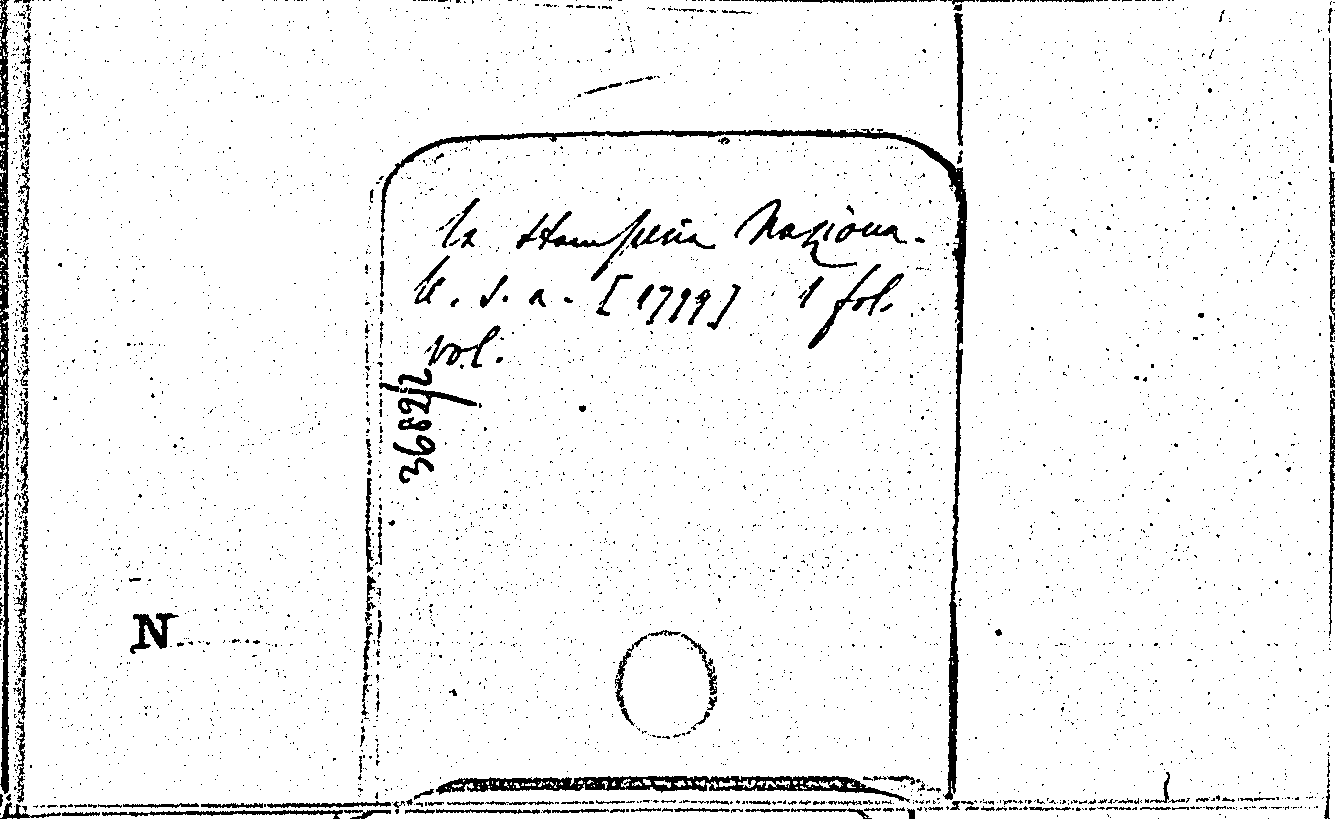 la Stamperia Naziona-
le. s. a. [1799] 1 fol.
vol.
3682/2
N